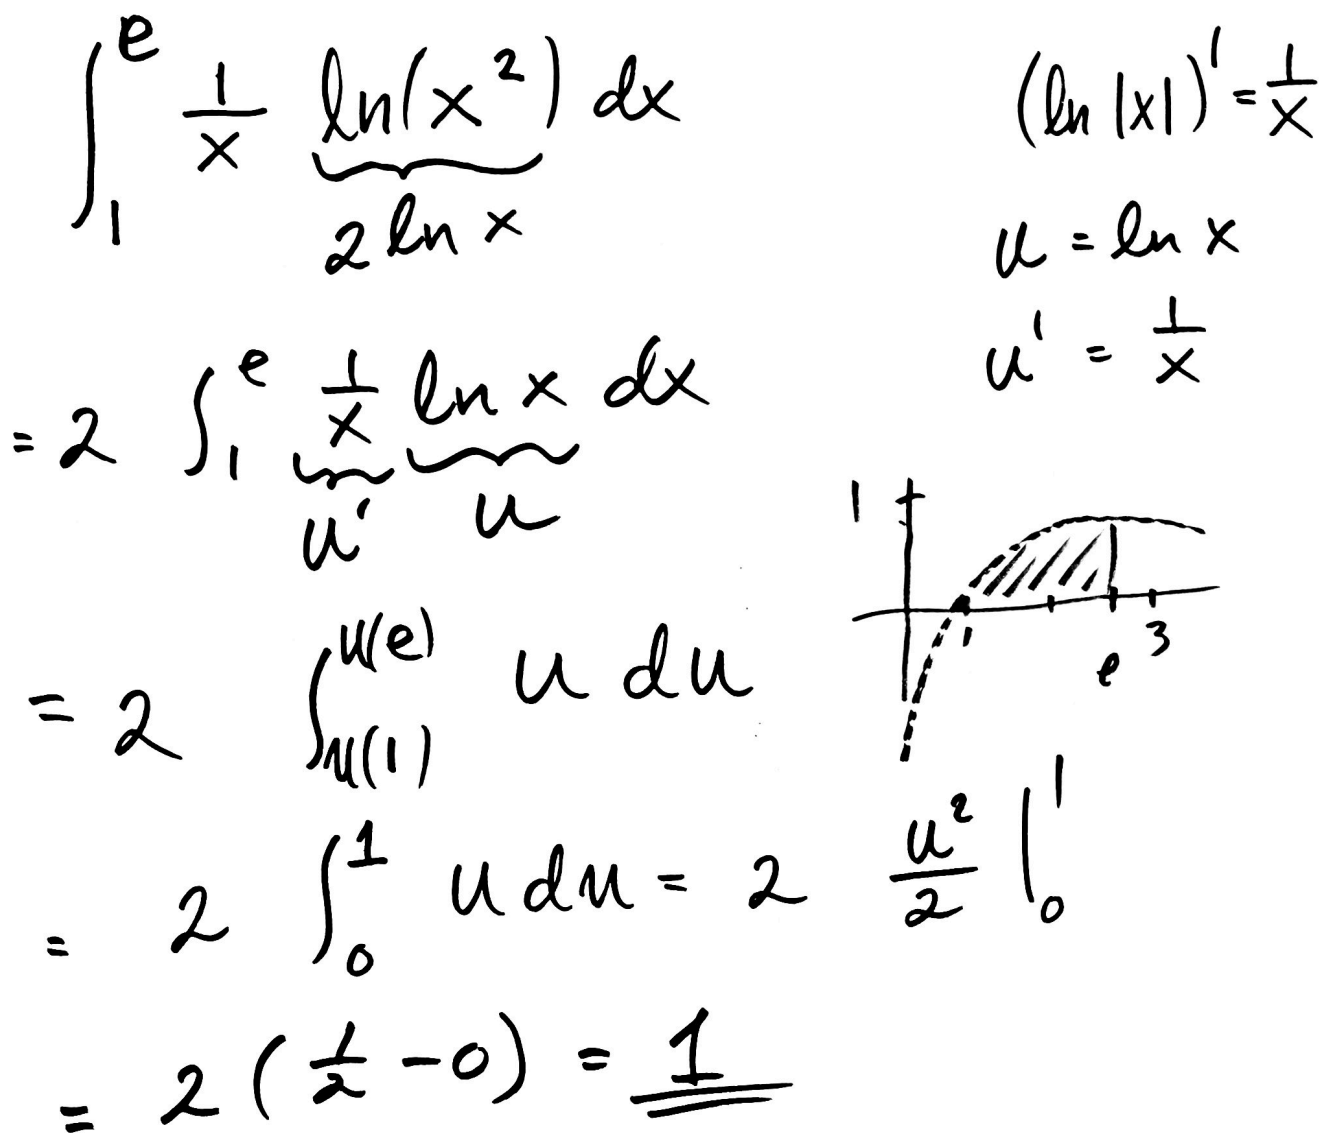 ∫₁ᵉ 1/x ln(x²) dx
2 ln x
(ln |x|)' = 1/x
u = ln x
u' = 1/x
= 2 ∫₁ᵉ 1/x ln x dx
u' u
1
1 e 3
= 2 ∫_{u(1)}^{u(e)} u du
= 2 ∫₀¹ u du = 2 u²/2 |₀¹
= 2 (1/2 - 0) = 1